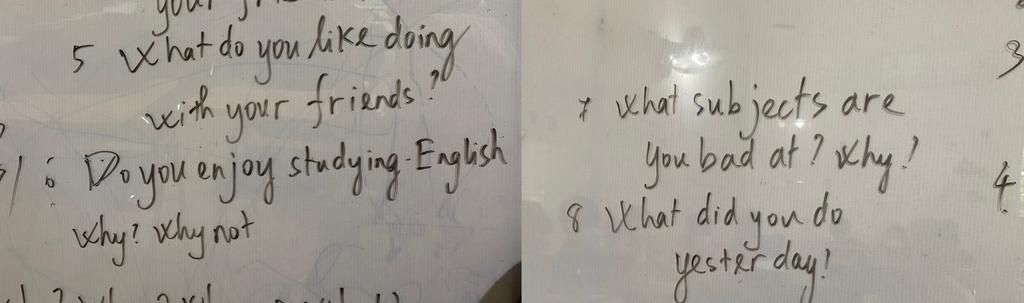 your
5 What do you like doing
with your friends?
6 Do you enjoy studying English
Why? Why not
3
7 What subjects are
you bad at? Why?
4
8 What did you do
yesterday?